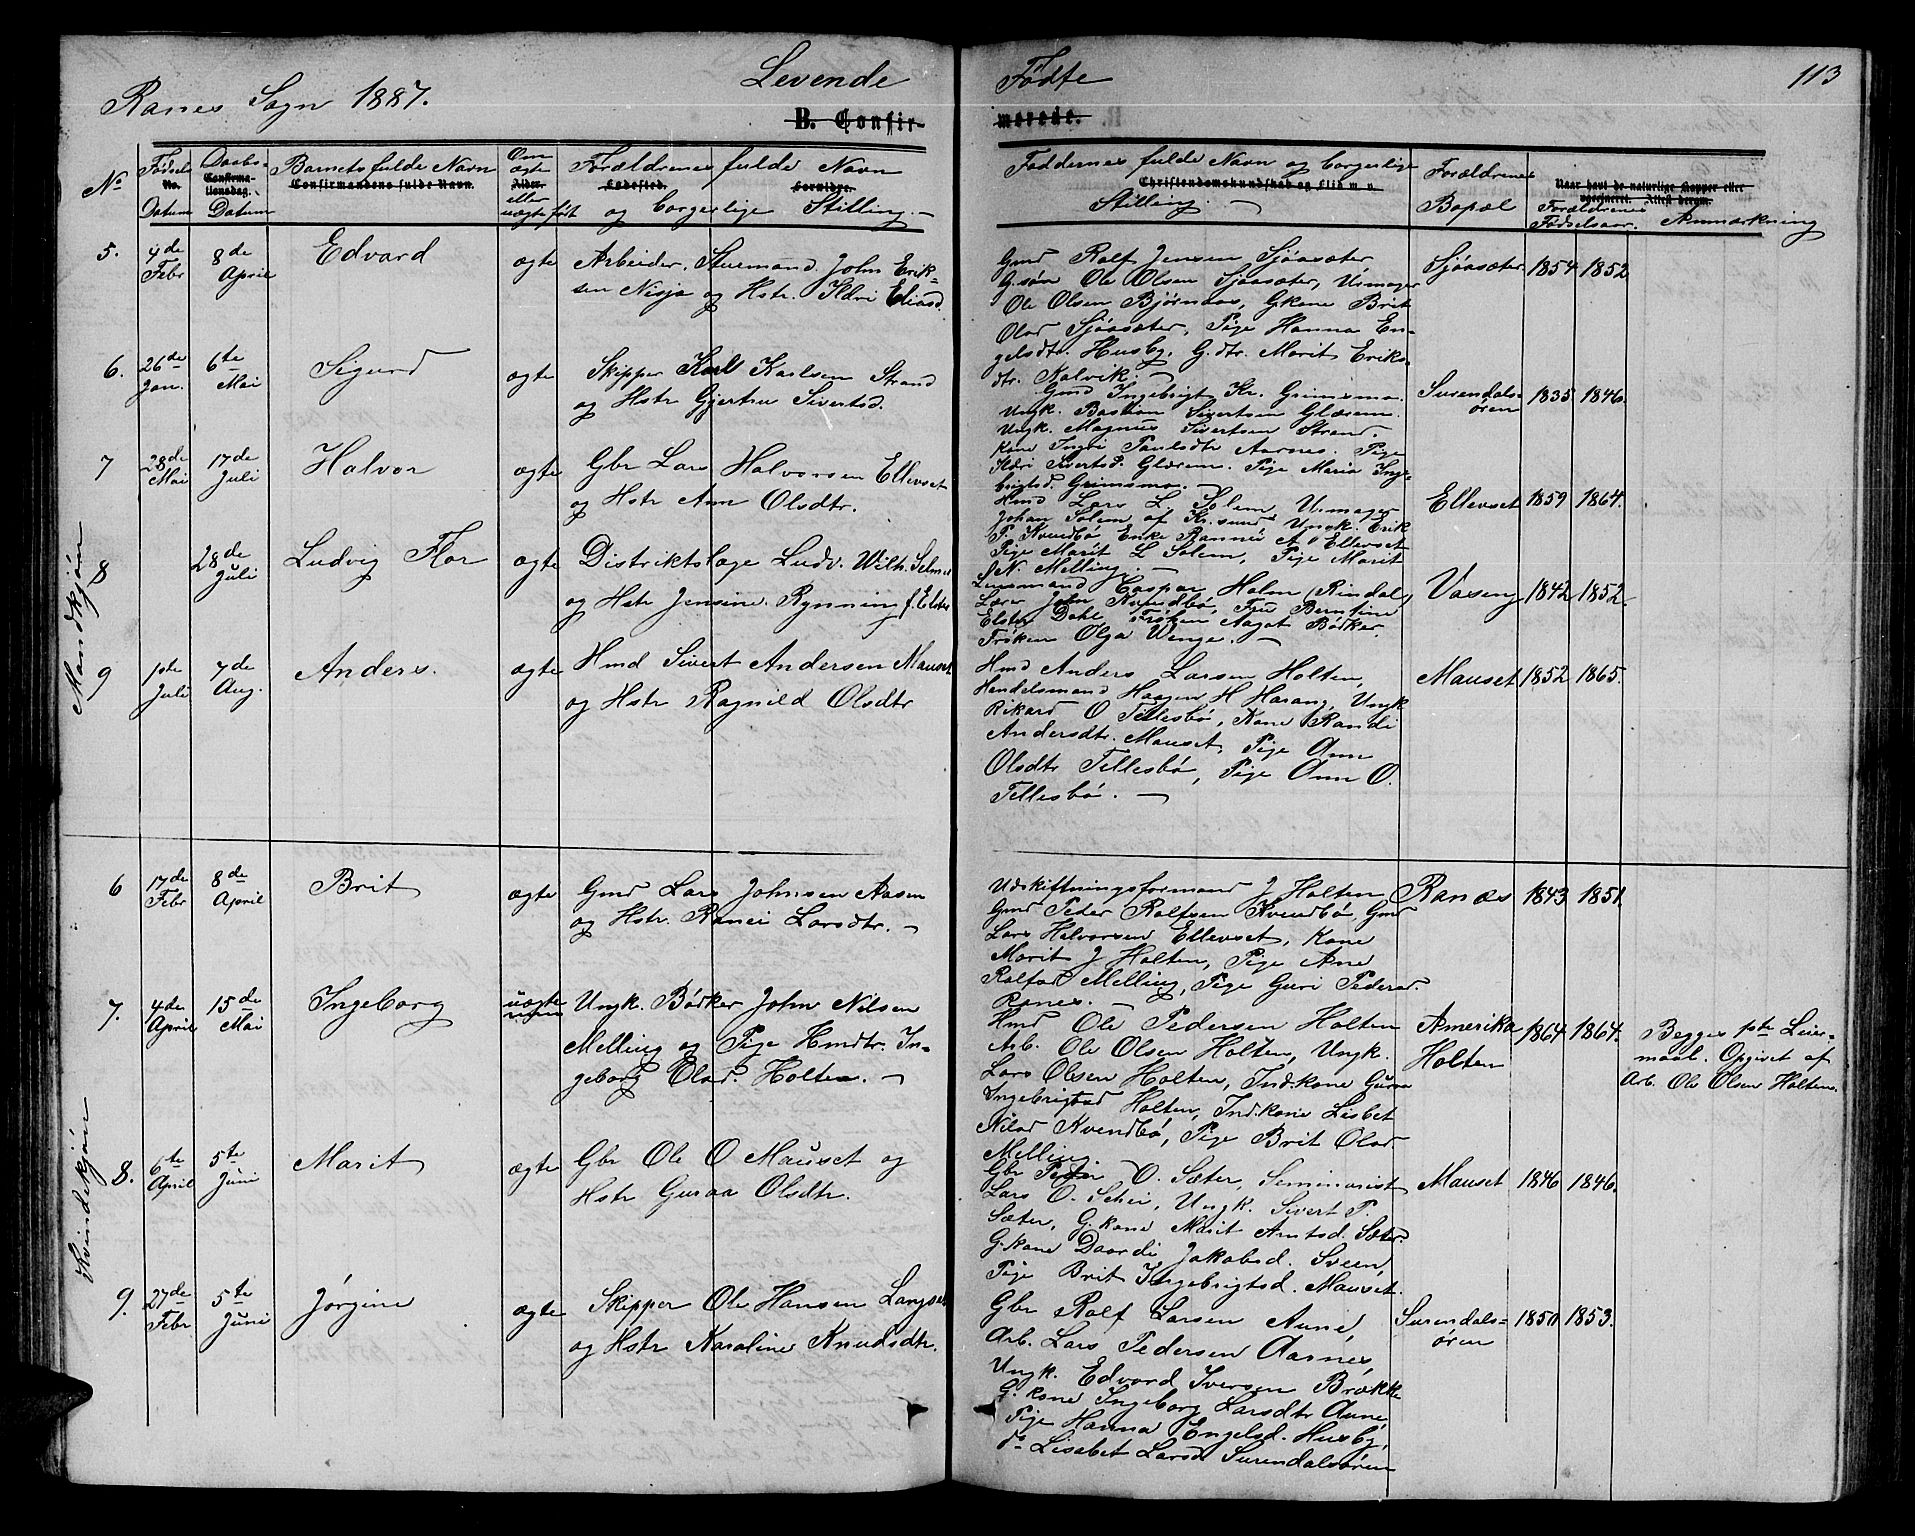 Ranes Sogn 1887.
Levende
Fødte
113
B. Confir-
merede.
No
Fødsels
No.
Datum
Daabs-
Confirma-
tionsdag.
Datum
Barnets fulde Navn
Confirmandens fulde Navn.
Om
ægte
Alder.
eller
uægte født
Forældrenes fulde Navn
Fødested. Forældre.
og borgerlige Stilling.
Faddernes fulde Navn og borgerlige
Christendomskundskab og Flid m. v.
Stilling.
Forældrenes
Bopæl
Naar havt de naturlige Kopper eller
vaccineret. Attest derom.
Forældrenes
Fødselsaar.
Anmærkning
Mandkjøn
5. 4de Febr
8de April
Edvard
ægte
Arbeider, Stuemand John Erik-
sen Nisja og Hstr. Ildri Eliasd.
Gmd Ralf Jensen Sjøasæter
G.søn Ole Olsen Sjøasæter, Urmager
Ole Olsen Bjørnaas, G.kone Brit
Olsd Sjøasæter, Pige Hanna En-
gelsdtr. Husby, G.dtr. Marit Eriks-
dtr. Kalvik.
Sjøasæter 1854 1852
6. 26de Jan.
6te Mai
Sigurd
ægte
Skipper Karl Karlsen Strand
og Hstr Gjertru Sivertsd.
Gmd Ingebrigt Kr. Grimsmo.
Ungk. Bastian Sivertsen Glærem.
Ungk. Magnus Sivertsen Strand.
Kone Ingri Paulsdtr Aarnes. Pige
Ildri Sivertsd. Glærem. Pige Maria Inge-
brigtsd. Grimsmo.
Surendals-
øren 1835 1846.
7 28de Mai
17de Juli
Halvor
ægte
Gbr Lars Halvorsen Ellevset
og Hstr Ann Olsdtr.
Hmd Lars L Solem, Urmager
Johan Solem af Kr.sund, Ungk. Erik
P. Kvendbø, Enke Rannei A. Ellevset
Pige Marit L Solem, Pige Marit
N. Melling.
Ellevset 1859 1864.
8
28de Juli
Ludvig Flor
ægte
Distriktslæge Ludv. Wilh. Selmer
og Hstr Jensine Rynning f. Elster
Lensmand Caspar Holm (Rindal)
Lærer John Kvendbø, Fru Berntine
Elster Dahl, Frøken Aagat Bødker.
Frøken Olga Wenge.
Vaseng 1842 1852.
9 1ste Juli
7de Aug.
Anders.
ægte
Hmd Sivert Andersen Mauset
og Hstr Ragnild Olsdtr
Hmd Anders Larsen Holten,
Handelsmand Haagen H Harang, Ungk
Rikard O Tellesbø, Kone Randi
Andersdtr. Mauset, Pige Ann
Olsdtr Tellesbø, Pige Ann O.
Tellesbø.
Mauset 1852 1865.
Kvindekjøn
6 17de Febr
8de April
Brit
ægte
Gmd Lars Johnsen Aasen
og Hstr. Ranei Larsdtr.
Udskiftningsformand J Holten
Gmd Peder Ralfsen Kvendbø, Gmd
Lars Halvorsen Ellevset, Kone
Marit J Holten, Pige Ane
Ralfsd Melling, Pige Guri Pedersd.
Ranes.
Ranæs 1843 1851.
7. 4de April
15de Mai
Ingeborg
uægte
Ungk. Bødker John Nilsen
Melling og Pige Hmdtr. In-
geborg Olsd. Holten.
Hmd Ole Pedersen Holten
Arb. Ole Olsen Holten, Ungk.
Lars Olsen Holten, Ind.kone Guraa
Ingebrigtsd Holten, Ind.kone Lisbet
Nilsd Kvendbø, Pige Brit Olsd.
Melling.
Amerika
Holten 1864 1864.
Begges 1ste Leier-
maal. Opgivet af
Arb. Ole Olsen Holten.
8. 6te April
5te Juni
Marit
ægte
Gbr Ole O Mauset og
Hstr Guraa Olsdtr.
Gbr Peder O. Sæter, Seminarist
Lars O. Schei, Ungk. Sivert P.
Sæter, G.kone Marit Arntsd. Sæter.
G.kone Daardi Jakobsd. Sveen,
Pige Brit Ingebrigtsd. Mauset.
Mauset 1846 1846.
9. 27de Febr
5te Juni
Jørgine
ægte
Skipper Ole Hansen Langset
og Hstr Karoline Knudsdtr.
Gbr Ralf Larsen Aune,
Arb. Lars Pedersen Aarnes,
Ungk. Edvard Iversen Brække
G.kone Ingeborg Larsdtr Aune,
Pige Hanna Engelsd. Husby,
do Lisabet Larsd Surendalsøren
Surendals-
øren 1850 1853.